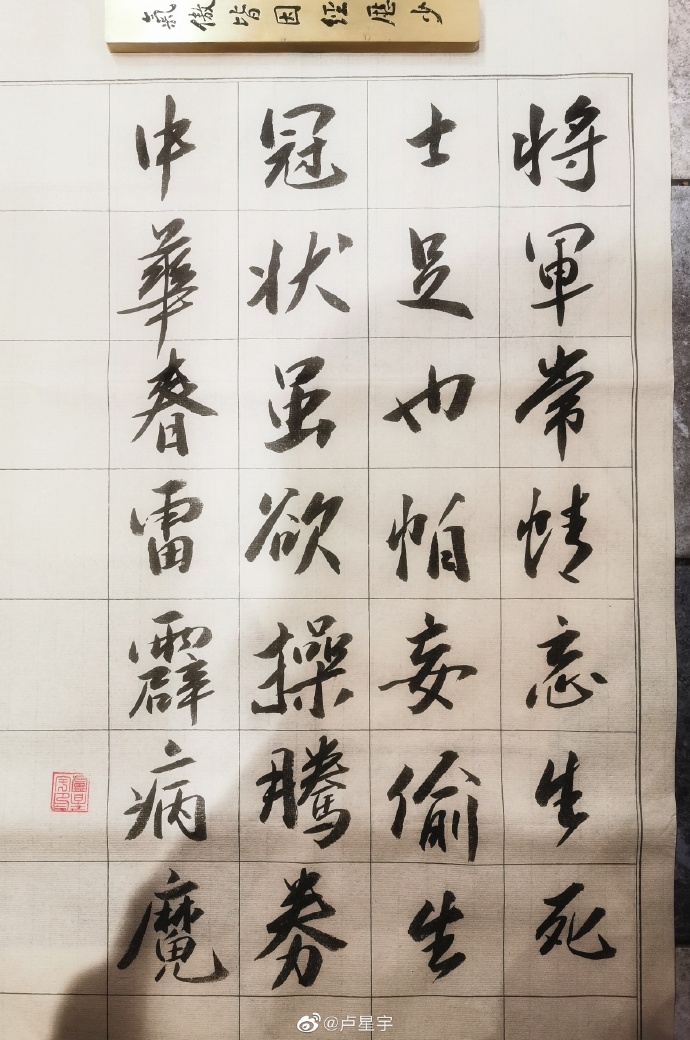 氣傲皆因經歷少
将軍常情忘生死
士足也怕妄偷生
冠状虽欲操騰劵
中華春雷霹病魔
@卢星宇